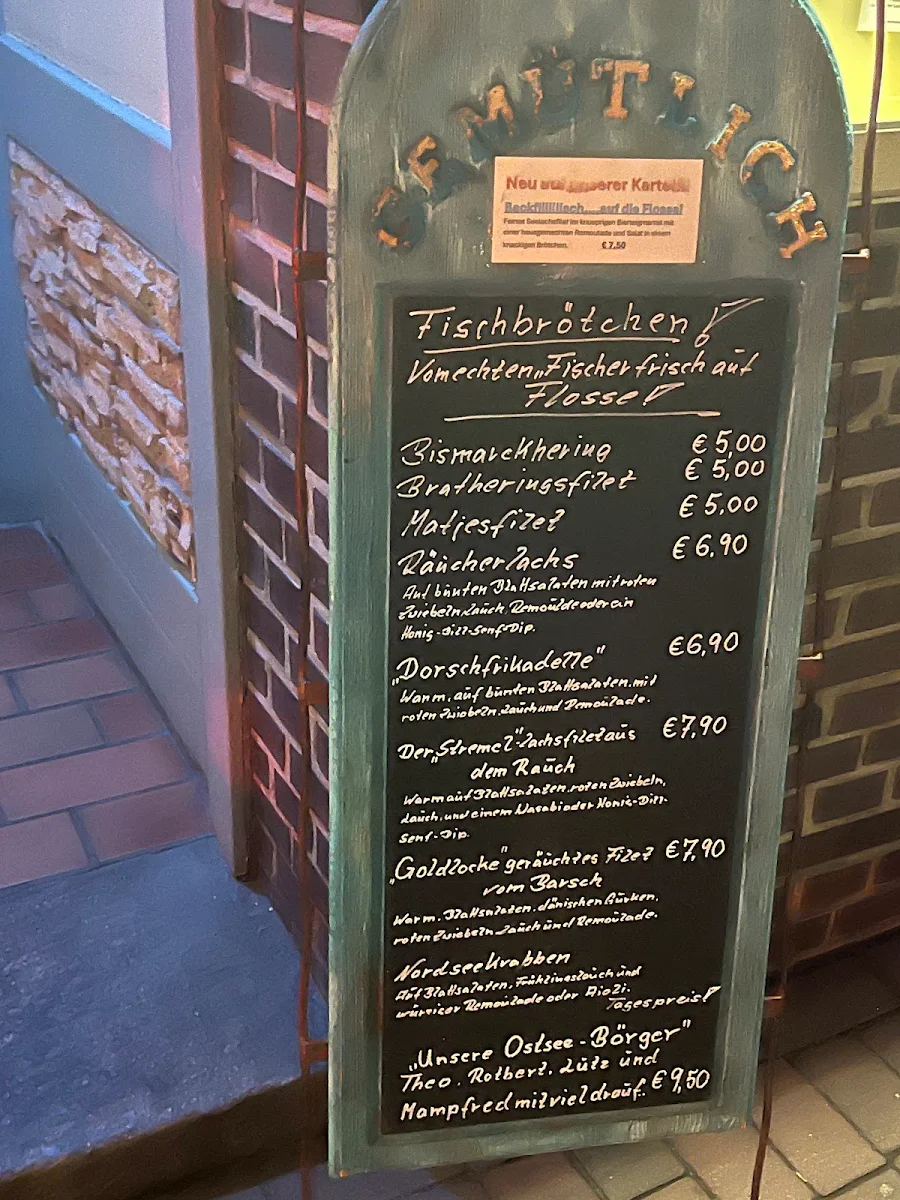 GEMÜTLICH
Neu auf unserer Karte!!!
Backfiiiiiiisch.....auf die Flosse!
Feines Seelachsfilet im knusprigen Bierteigmantel mit
einer hausgemachten Remoulade und Salat in einem
knackigen Brötchen. € 7,50
Fischbrötchen!
Vom echten „Fischer frisch auf
Flosse!
Bismarckhering € 5,00
Bratheringsfilet € 5,00
Matjesfilet € 5,00
Räucherlachs € 6.90
Auf bunten Blattsalaten mit roten
Zwiebeln, Lauch, Remoulade oder ein
Honig-Dill-Senf-Dip.
„Dorschfrikadelle" €6,90
Warm, auf bunten Blattsalaten, mit
roten Zwiebeln, Lauch und Remoulade.
Der „Stremel"-Lachsfilet aus €7,90
dem Rauch
Warm auf Blattsalaten, roten Zwiebeln,
Lauch, und einem Wasabi oder Honig-Dill-
Senf-Dip.
„Goldlocke" geräuchtes Filet €7,90
vom Barsch
Warm. Blattsalaten, dänischen Gurken,
roten Zwiebeln Lauch und Remoulade.
Nordseekrabben
Auf Blattsalaten, Frühlingslauch und
würziger Remoulade oder Aioli.
Tagespreis!
„Unsere Ostsee-Börger"
Theo, Rotbert, Lutz und
Mampfred mit viel drauf. € 9,50